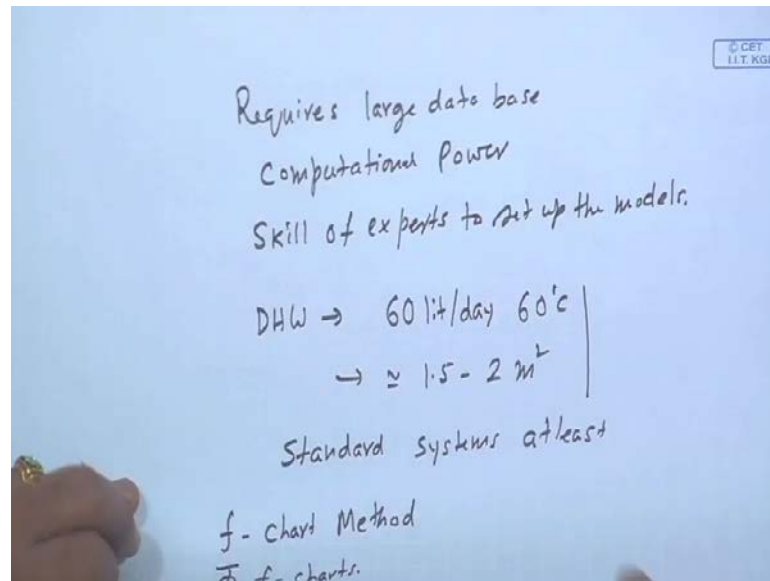 © CET
I.I.T. KGP
Requires large data base
Computational Power
Skill of experts to set up the models.
DHW → 60 lit/day 60°C
→ ≃ 1.5 - 2 m²
Standard systems atleast
f - Chart Method
Φ̅ f - charts.